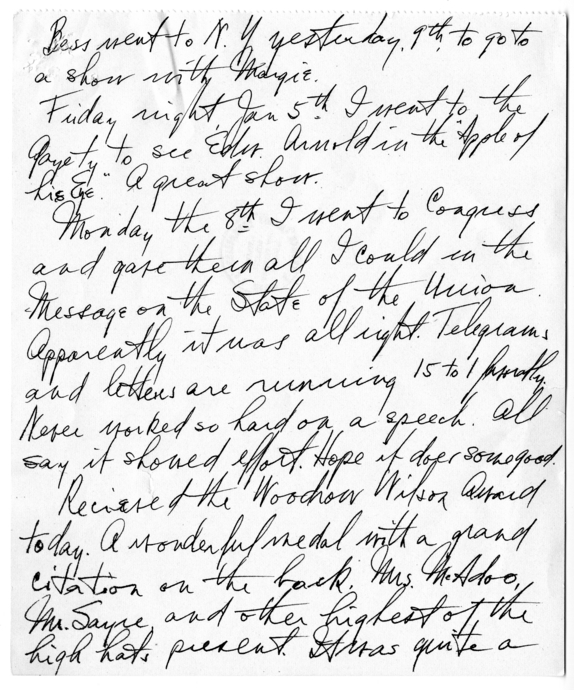 Bess went to N.Y yesterday, 9th, to go to
a show with Margie.
Friday night Jan 5th I went to the
Gayety to see Edw. Arnold in the "Apple of
his Eye." A great show.
Monday the 8th I went to Congress
and gave them all I could in the
Message on the State of the Union.
Apparently it was all right. Telegrams
and letters are running 15 to 1 friendly.
Never worked so hard on a speech. All
say it showed effort. Hope it does some good.
Recieved the Woodrow Wilson Award
today. A wonderful medal with a grand
citation on the back. Mrs. McAdoo,
Mr. Sayre, and other highest of the
high hats present. It was quite a